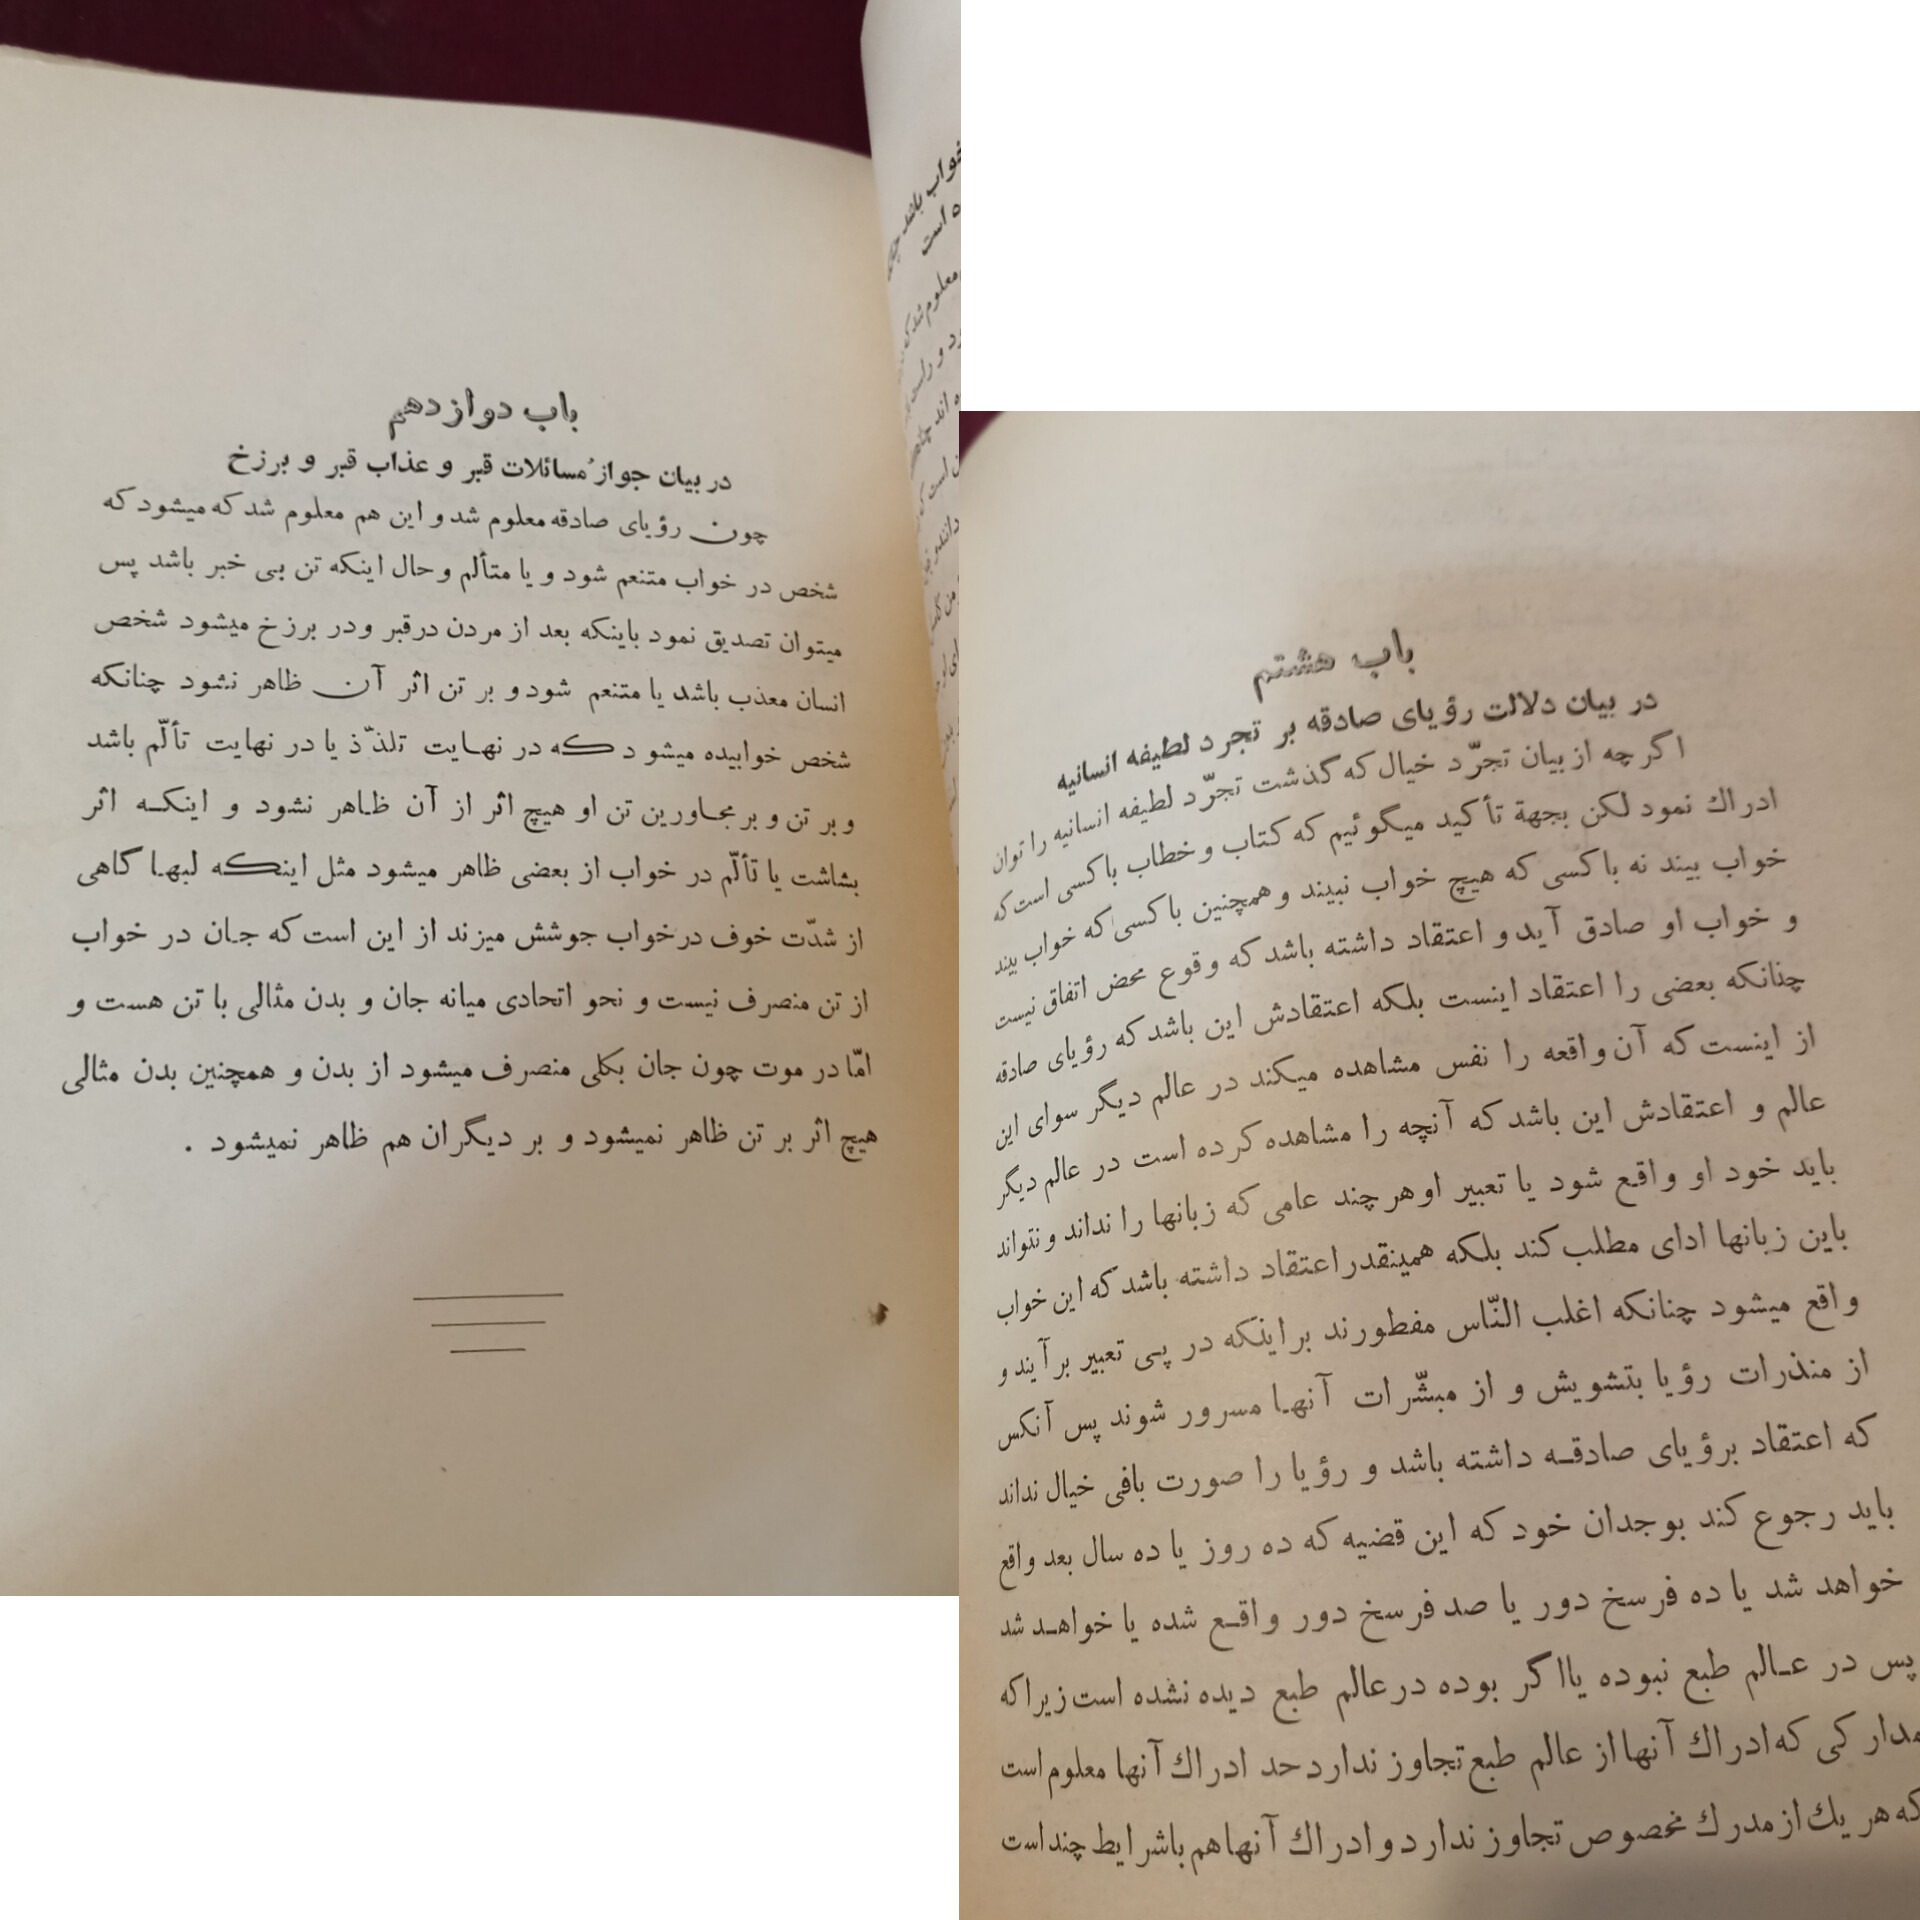 باب دوازدهم
در بیان جواز مسائلات قبر و عذاب قبر و برزخ
چون رؤیای صادقه معلوم شد و این هم معلوم شد که میشود که
شخص در خواب متنعم شود و یا متألم و حال اینکه تن بی خبر باشد پس
میتوان تصدیق نمود باینکه بعد از مردن در قبر و در برزخ میشود شخص
انسان معذب باشد یا متنعم شود و بر تن اثر آن ظاهر نشود چنانکه
شخص خوابیده میشود که در نهایت تلذّذ یا در نهایت تألّم باشد
و بر تن و بر مجاورین تن او هیچ اثر از آن ظاهر نشود و اینکه اثر
بشاشت یا تألّم در خواب از بعضی ظاهر میشود مثل اینکه لبها گاهی
از شدّت خوف در خواب جوشش میزند از این است که جان در خواب
از تن منصرف نیست و نحو اتحادی میانه جان و بدن مثالی با تن هست و
امّا در موت چون جان بکلی منصرف میشود از بدن و همچنین بدن مثالی
هیچ اثر بر تن ظاهر نمیشود و بر دیگران هم ظاهر نمیشود .
خواب باشد
است
معلوم شد
باب هشتم
در بیان دلالت رؤیای صادقه بر تجرد لطیفه انسانیه
اگر چه از بیان تجرّد خیال که گذشت تجرّد لطیفه انسانیه را توان
ادراك نمود لکن بجهة تأکید میگوئیم که کتاب و خطاب با کسی است که
خواب بیند نه با کسی که هیچ خواب نبیند و همچنین با کسی که خواب بیند
و خواب او صادق آید و اعتقاد داشته باشد که وقوع محض اتفاق نیست
چنانکه بعضی را اعتقاد اینست بلکه اعتقادش این باشد که رؤیای صادقه
از اینست که آن واقعه را نفس مشاهده میکند در عالم دیگر سوای این
عالم و اعتقادش این باشد که آنچه را مشاهده کرده است در عالم دیگر
باید خود او واقع شود یا تعبیر او هر چند عامی که زبانها را نداند و نتواند
باین زبانها ادای مطلب کند بلکه همینقدر اعتقاد داشته باشد که این خواب
واقع میشود چنانکه اغلب النّاس مفطورند بر اینکه در پی تعبیر بر آیند و
از منذرات رؤیا بتشویش و از مبشّرات آنها مسرور شوند پس آنکس
که اعتقاد برؤیای صادقه داشته باشد و رؤیا را صورت بافی خیال نداند
باید رجوع کند بوجدان خود که این قضیه که ده روز یا ده سال بعد واقع
خواهد شد یا ده فرسخ دور یا صد فرسخ دور واقع شده یا خواهد شد
پس در عالم طبع نبوده یا اگر بوده در عالم طبع دیده نشده است زیرا که
مدارکی که ادراك آنها از عالم طبع تجاوز ندارد حد ادراك آنها معلوم است
که هر یك از مدرك مخصوص تجاوز ندارد و ادراك آنها هم باشرایط چند است